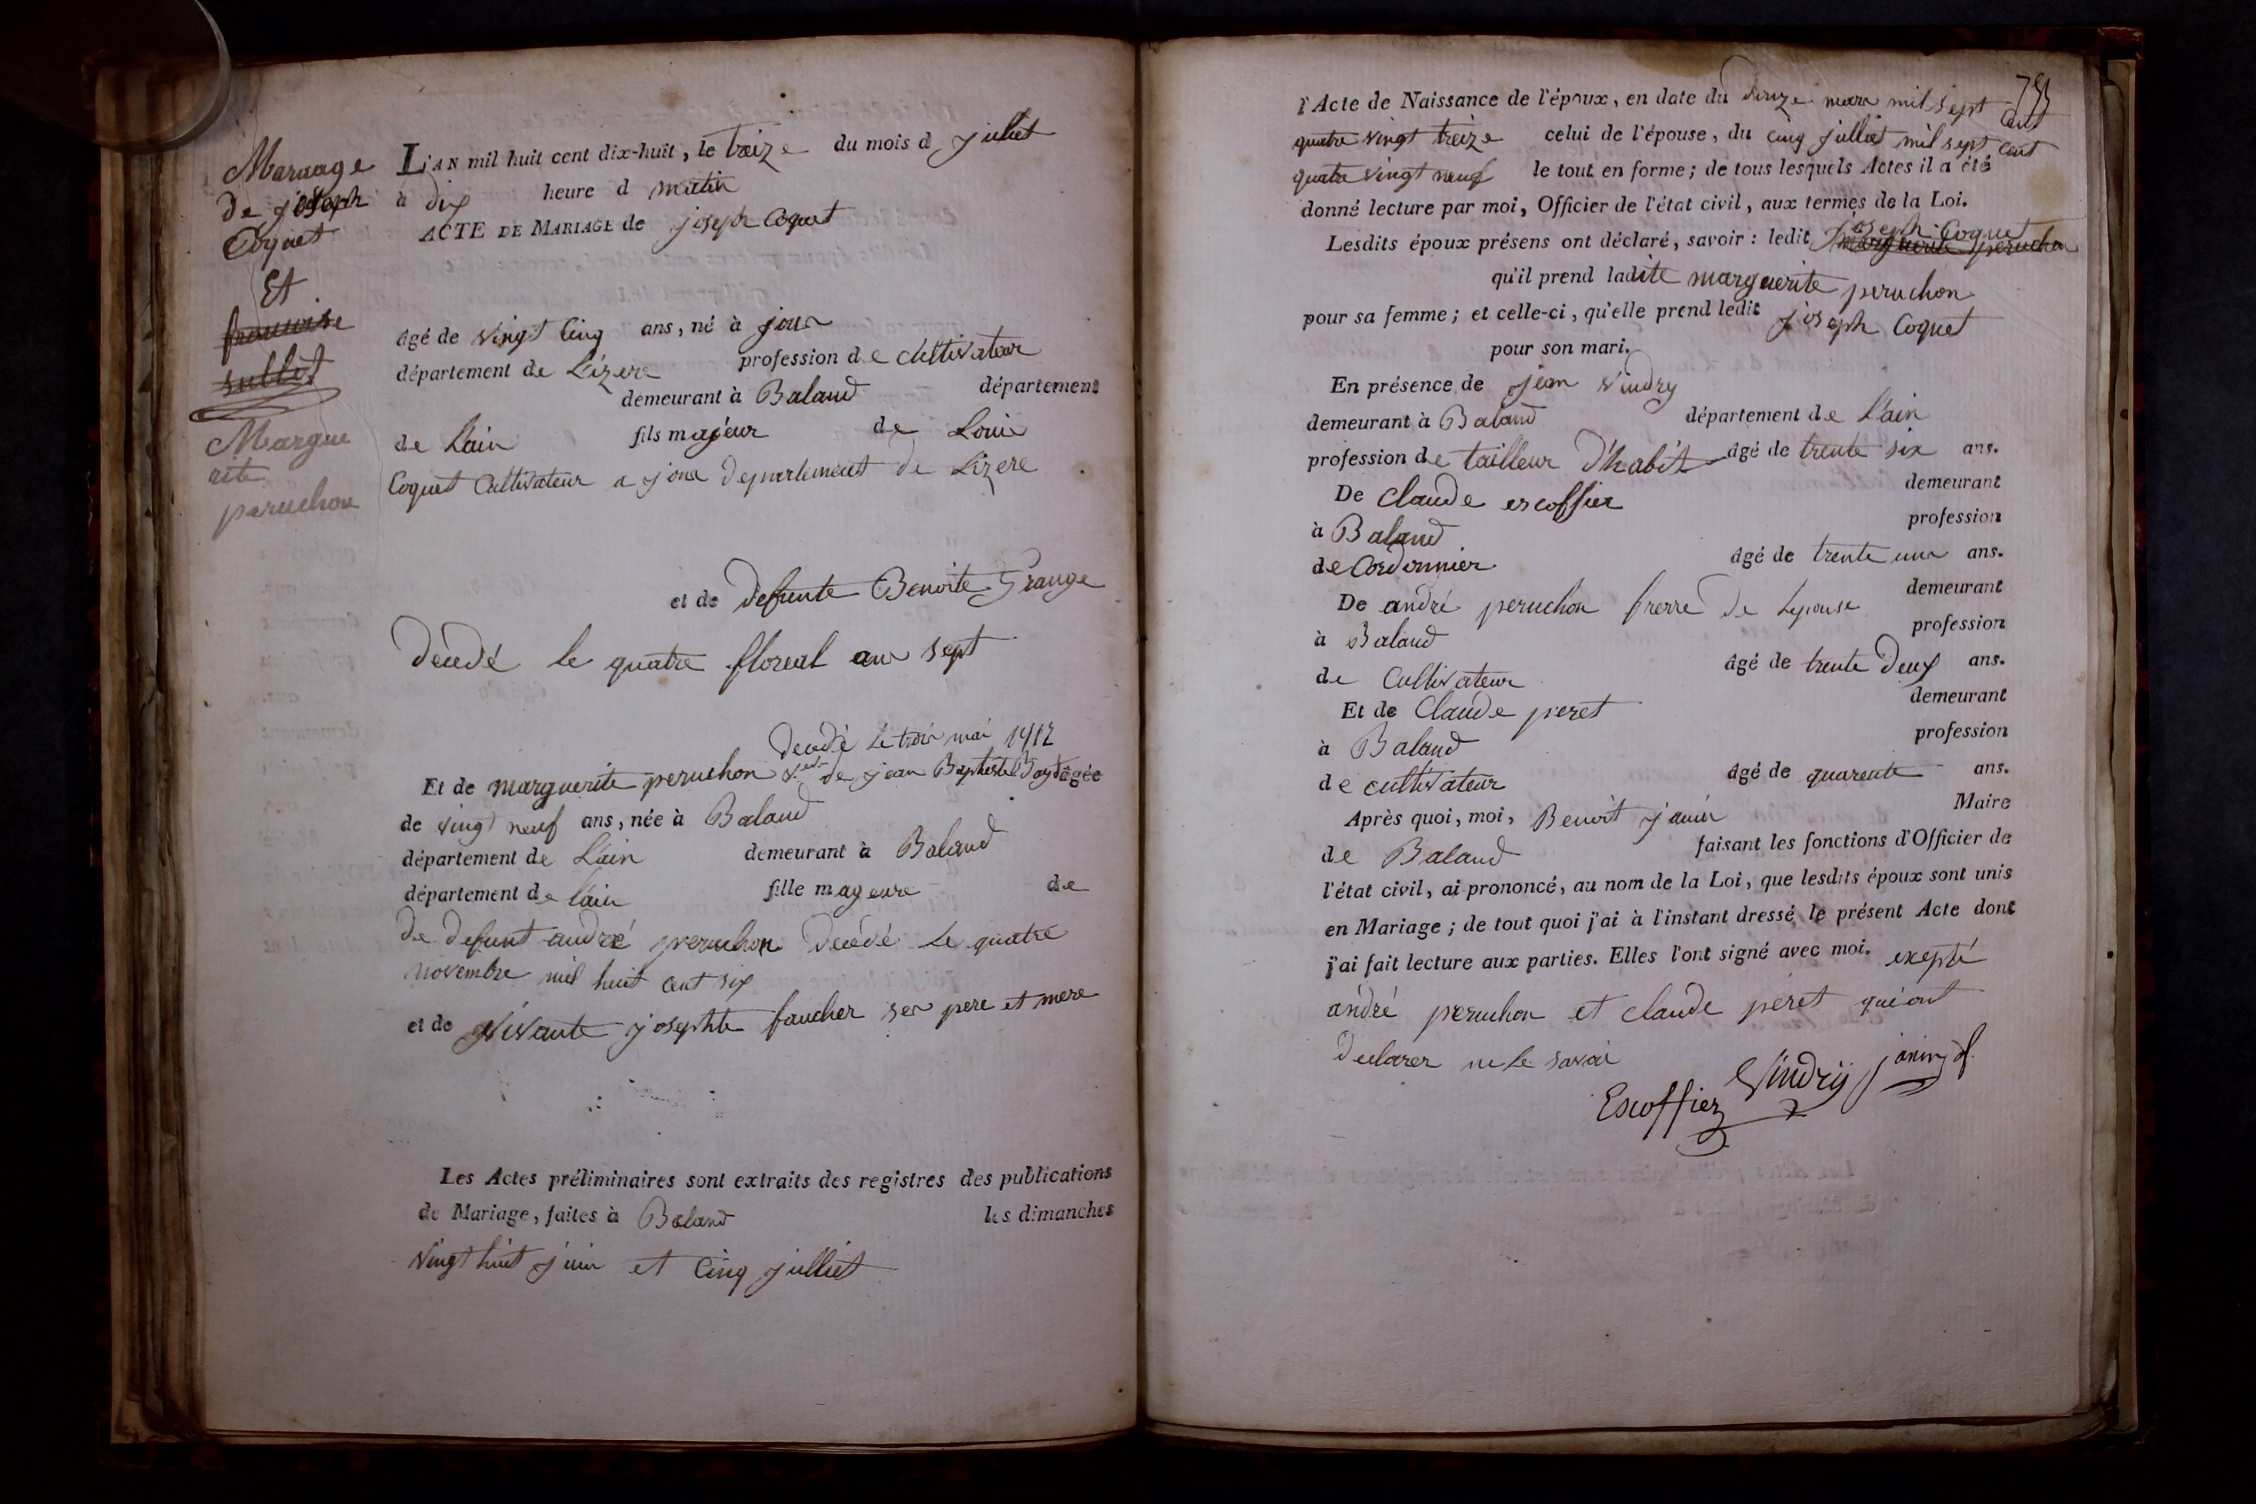 Mariage
de joseph
Coquet
Et
francoise
sublet
Margue
rite
peruchon
L'AN mil huit cent dix-huit, le treize du mois d juliet
à dix heure d matin
ACTE DE MARIAGE de joseph Coquet
âgé de vingt Cinq ans, né à jona
département de L'izere profession de cultivateur
demeurant à Baland département
de L'ain fils majeur de Louis
Coquet Cultivateur a jona departement de Lizere
et de defunte Benoite Grange
decedé le quatre floreal an sept
decedé le trois mai 1812
Et de marguerite peruchon de jean Baptiste âgée
de vingt neuf ans, née à Baland
département de L'ain demeurant à Baland
département de L'ain fille mageure de
de defunt andré peruchon decédé le quatre
novembre mil huit cent six
et de vivante josephte faucher ses pere et mere
Les Actes préliminaires sont extraits des registres des publications
de Mariage, faites à Baland les dimanches
vingt huit juin et Cinq julliet
755
l'Acte de Naissance de l'époux, en date du douze mars mil sept cent
quatre vingt treize celui de l'épouse, du cinq julliet mil sept cent
quatre vingt neuf le tout en forme; de tous lesquels Actes il a été
donné lecture par moi, Officier de l'état civil, aux termes de la Loi.
joseph Coquet
Lesdits époux présens ont déclaré, savoir: ledit marguerite peruchon
qu'il prend ladite marguerite peruchon
pour sa femme; et celle-ci, qu'elle prend ledit joseph Coquet
pour son mari.
En présence de jean Vindry
demeurant à Baland département de L'ain
profession de tailleur d'habit âgé de trente six ans.
De claude escoffier demeurant
à Baland profession
de Cordonnier âgé de trente un ans.
De andré peruchon frerre de Lepouse demeurant
à Baland profession
de Cultivateur âgé de trente deux ans.
Et de Claude peret demeurant
à Baland profession
de cultivateur âgé de quarente ans.
Après quoi, moi, Benoit janin Maire
de Baland faisant les fonctions d'Officier de
l'état civil, ai prononcé, au nom de la Loi, que lesdits époux sont unis
en Mariage; de tout quoi j'ai à l'instant dressé le présent Acte dont
j'ai fait lecture aux parties. Elles l'ont signé avec moi. exepté
andré peruchon et claude peret qui ont
declarer ne le savoir
Escoffier Vindry janin